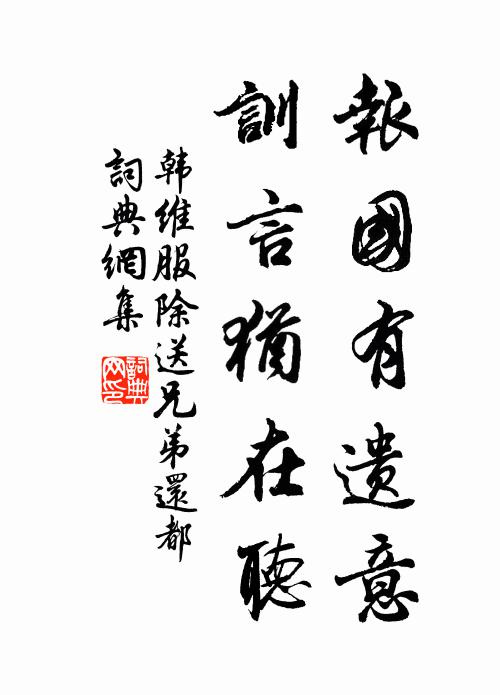 報國有遺意
訓言猶在聽
韩維服除送兄弟還都
詞典網集
詞典
网印